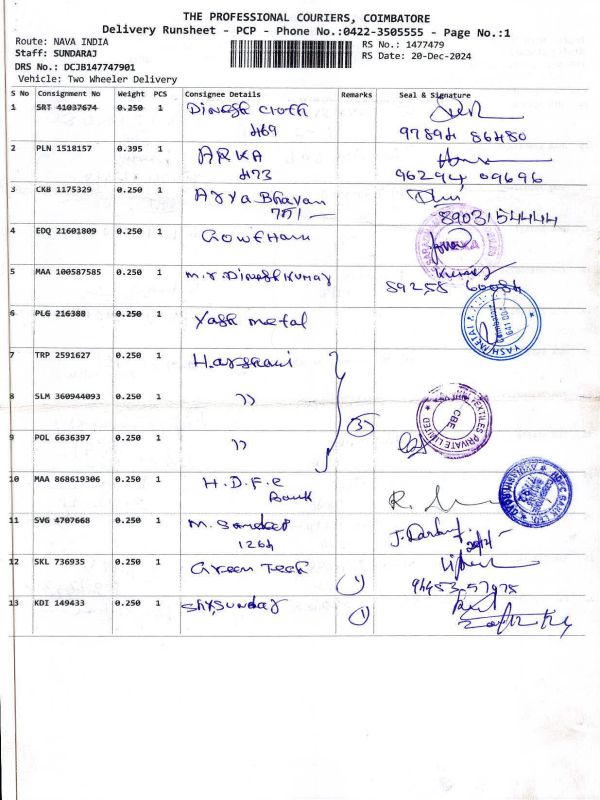 THE PROFESSIONAL COURIERS, COIMBATORE
Delivery Runsheet - PCP - Phone No.:0422-3505555 - Page No.:1
Route: NAVA INDIA
RS No.: 1477479
Staff: SUNDARAJ
RS Date: 20-Dec-2024
DRS No.: DCJB147747901
Vehicle: Two Wheeler Delivery
S No Consignment No Weight PCS Consignee Details Remarks Seal & Signature
1 SRT 41037674 0.250 1 Dinesh cloth
469 97894 86480
2 PLN 1518157 0.395 1 ARKA
473 96294 09696
3 CKB 1175329 0.250 1 Arya Bhavan
771 8903154444
4 EDQ 21601809 0.250 1 Gowtham
5 MAA 100587585 0.250 1 M.r.Dinesh Kumar
89258 60084
6 PLG 216388 0.250 1 Yash metal
YASH METAL
7 TRP 2591627 0.250 1 Harshani
8 SLM 360944093 0.250 1 "
TEXTILES PRIVATE LIMITED
CBE
3
9 POL 6636397 0.250 1 "
10 MAA 868619306 0.250 1 H.D.F.C
Bank
11 SVG 4707668 0.250 1 M. Sandeep
1264
12 SKL 736935 0.250 1 Green Tech
1 94453 57975
13 KDI 149433 0.250 1 Shysundar 1